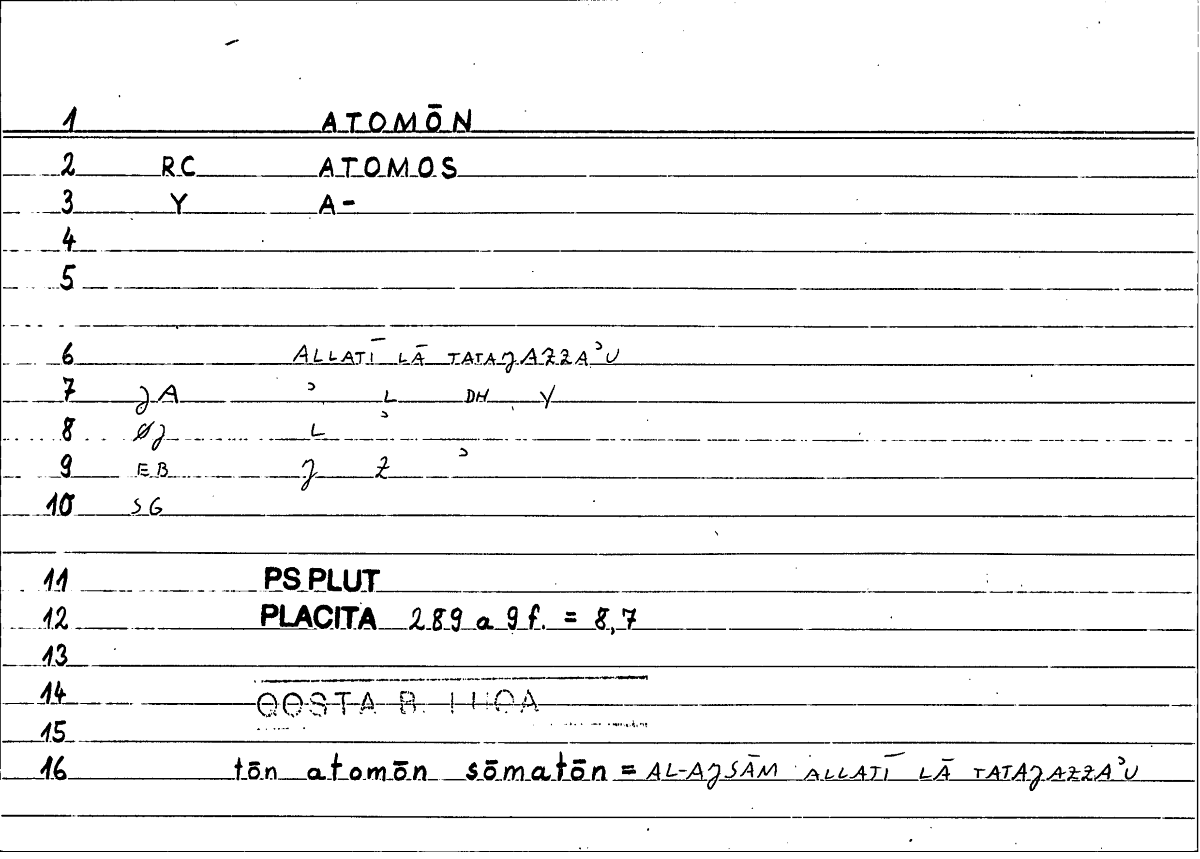 1 ATOMŌN
2 RC ATOMOS
3 Y A-
4
5
6 ALLATĪ LĀ TATAJAZZAʾU
7 JA ʾ L DH Y
8 ØJ L ʾ
9 EB J Z ʾ
10 SG
11 PS PLUT
12 PLACITA 289 a 9 f. = 8,7
13
14 QOSTA B. LUQA
15
16 tōn atomōn sōmatōn = AL-AJSĀM ALLATĪ LĀ TATAJAZZAʾU